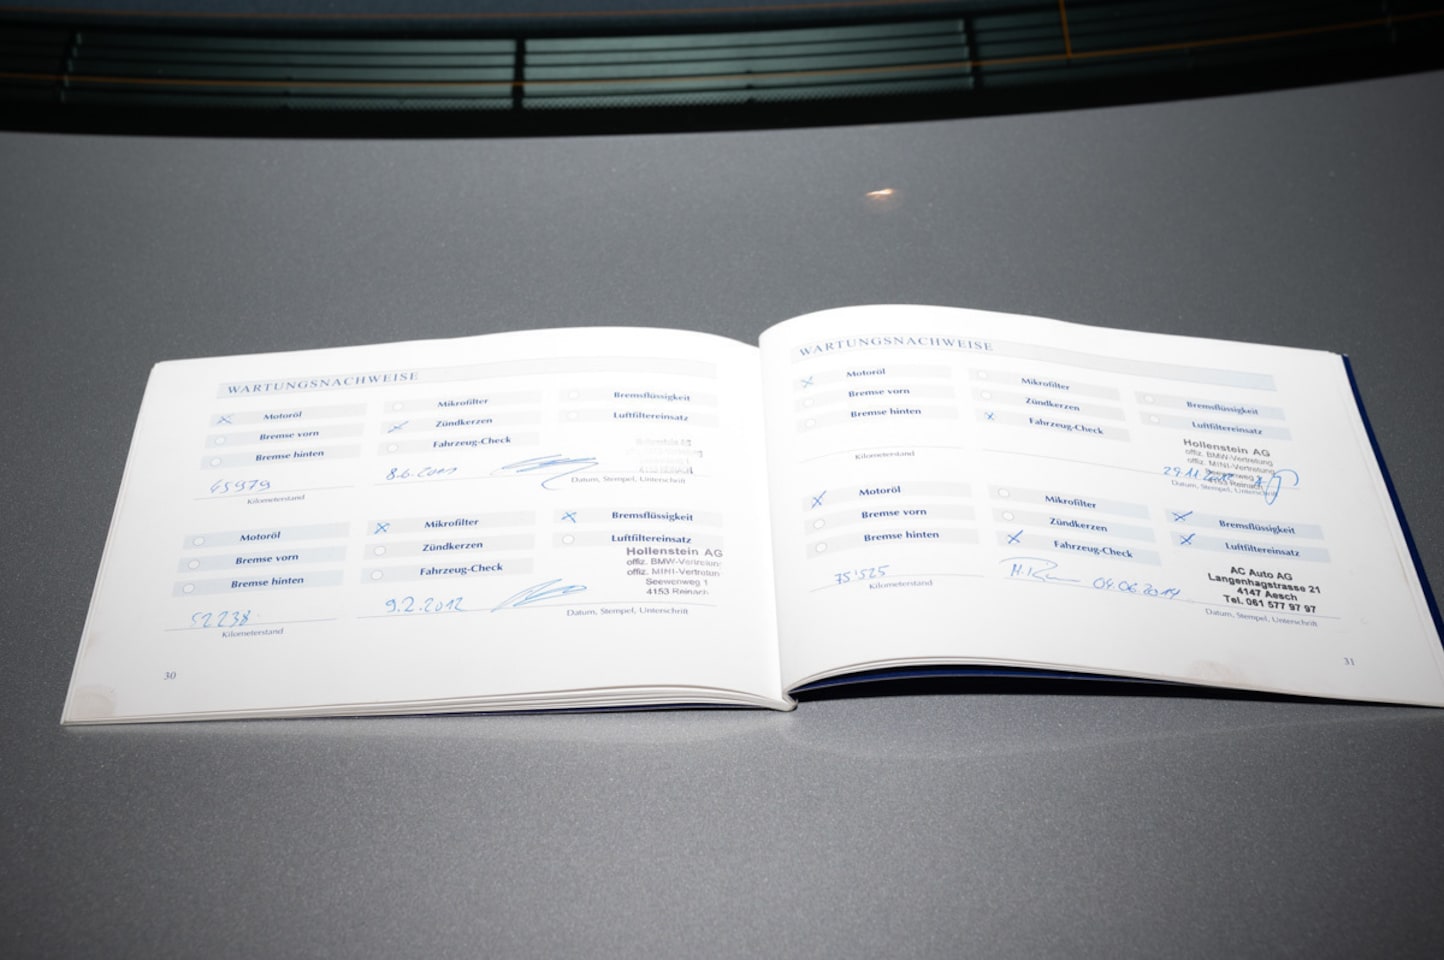 WARTUNGSNACHWEISE
Motoröl Mikrofilter Bremsflüssigkeit
Bremse vorn Zündkerzen Luftfiltereinsatz
Bremse hinten Fahrzeug-Check
45979 8.6.2011
Kilometerstand Datum, Stempel, Unterschrift
Motoröl Mikrofilter Bremsflüssigkeit
Bremse vorn Zündkerzen Luftfiltereinsatz
Bremse hinten Fahrzeug-Check
Hollenstein AG
offiz. BMW-Vertretung
offiz. MINI-Vertretung
Seewenweg 1
4153 Reinach
52238 9.2.2012
Kilometerstand Datum, Stempel, Unterschrift
30
WARTUNGSNACHWEISE
Motoröl Mikrofilter Bremsflüssigkeit
Bremse vorn Zündkerzen Luftfiltereinsatz
Bremse hinten Fahrzeug-Check
Hollenstein AG
offiz. BMW-Vertretung
offiz. MINI-Vertretung
Seewenweg 1
4153 Reinach
29.11
Kilometerstand Datum, Stempel, Unterschrift
Motoröl Mikrofilter Bremsflüssigkeit
Bremse vorn Zündkerzen Luftfiltereinsatz
Bremse hinten Fahrzeug-Check
AC Auto AG
Langenhagstrasse 21
4147 Aesch
Tel. 061 577 97 97
75'525 04.06.2014
Kilometerstand Datum, Stempel, Unterschrift
31